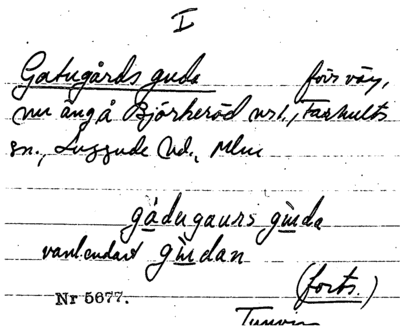 I
Gatugårds guda förr väg,
nu äng å Björkeröd nr 1, Farhults
sn., Luggude hd., Mlm
gådugaurs gùda
vanl. endast gùdan
(forts.)
Nr 5677.